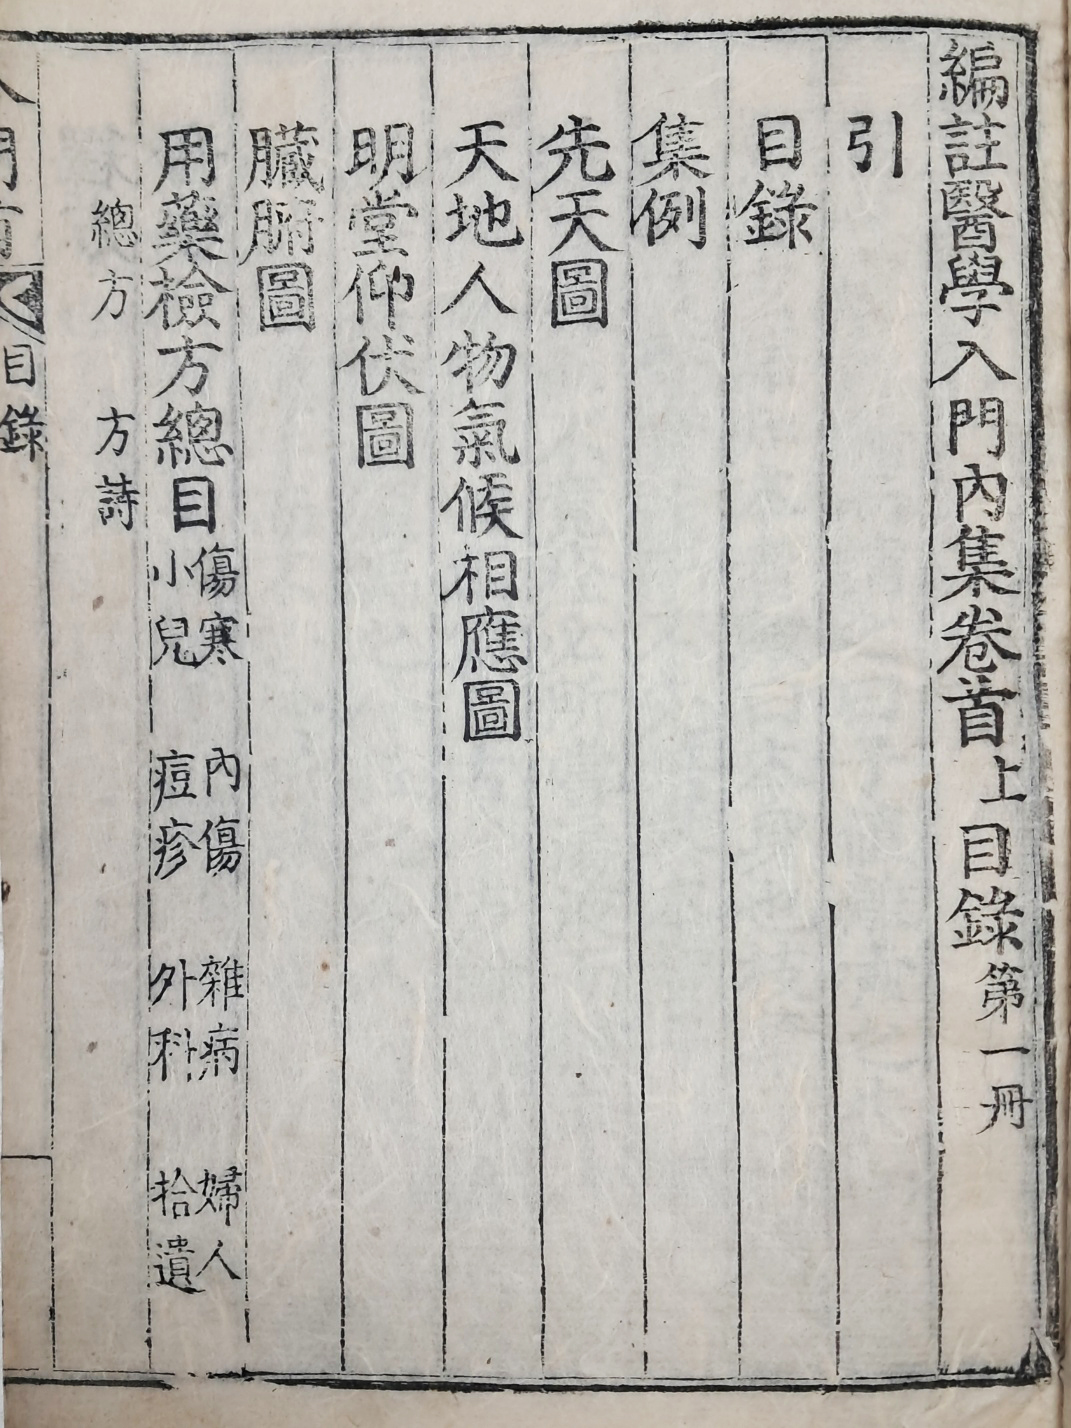 編註醫學入門內集卷首上目錄第一冊
引
目錄
集例
先天圖
天地人物氣候相應圖
明堂仰伏圖
臟腑圖
用藥檢方總目
傷寒 內傷 雜病 婦人
小兒 痘疹 外科 拾遺
總方 方詩
目錄